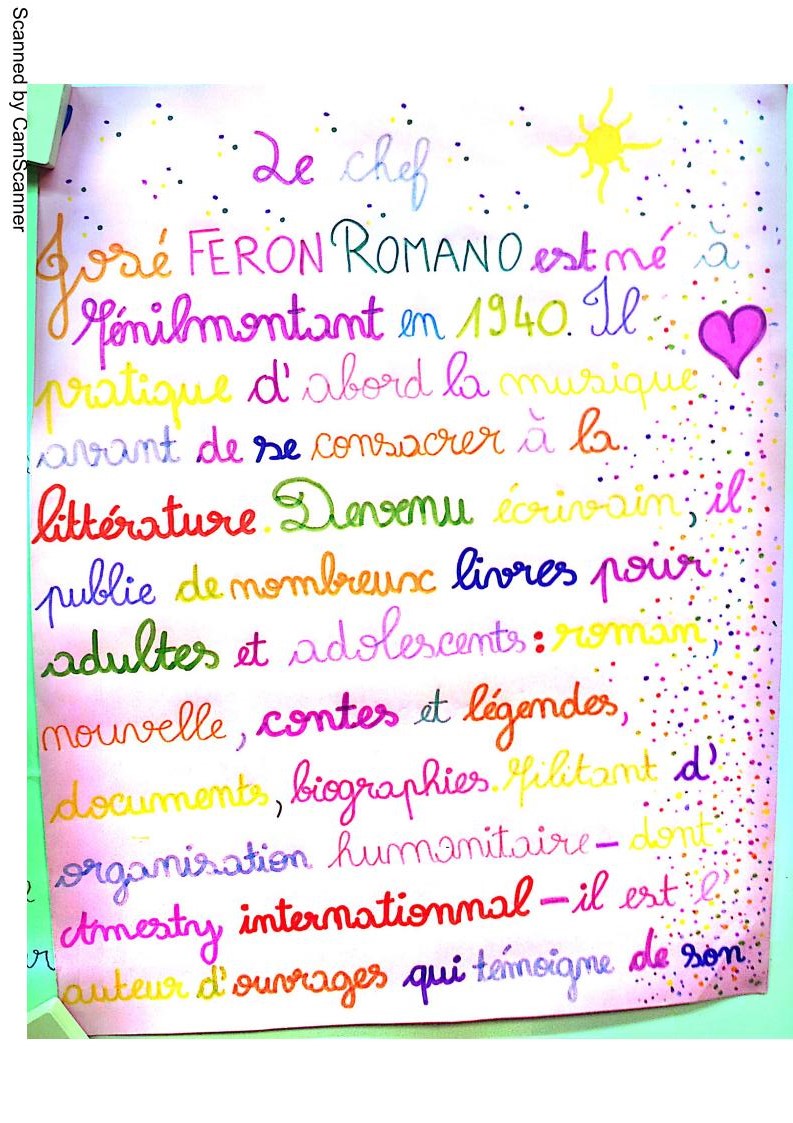 Scanned by CamScanner
Le chef
José FERON ROMANO est né à
Ménilmontant en 1940. Il
pratique d'abord la musique
avant de se consacrer à la
littérature. Devenu écrivain, il
publie de nombreux livres pour
adultes et adolescents : roman,
nouvelle, contes et légendes,
documents, biographies. Militant d'
organisation humanitaire - dont
Amestry internationnal - il est l'
auteur d'ouvrages qui témoigne de son